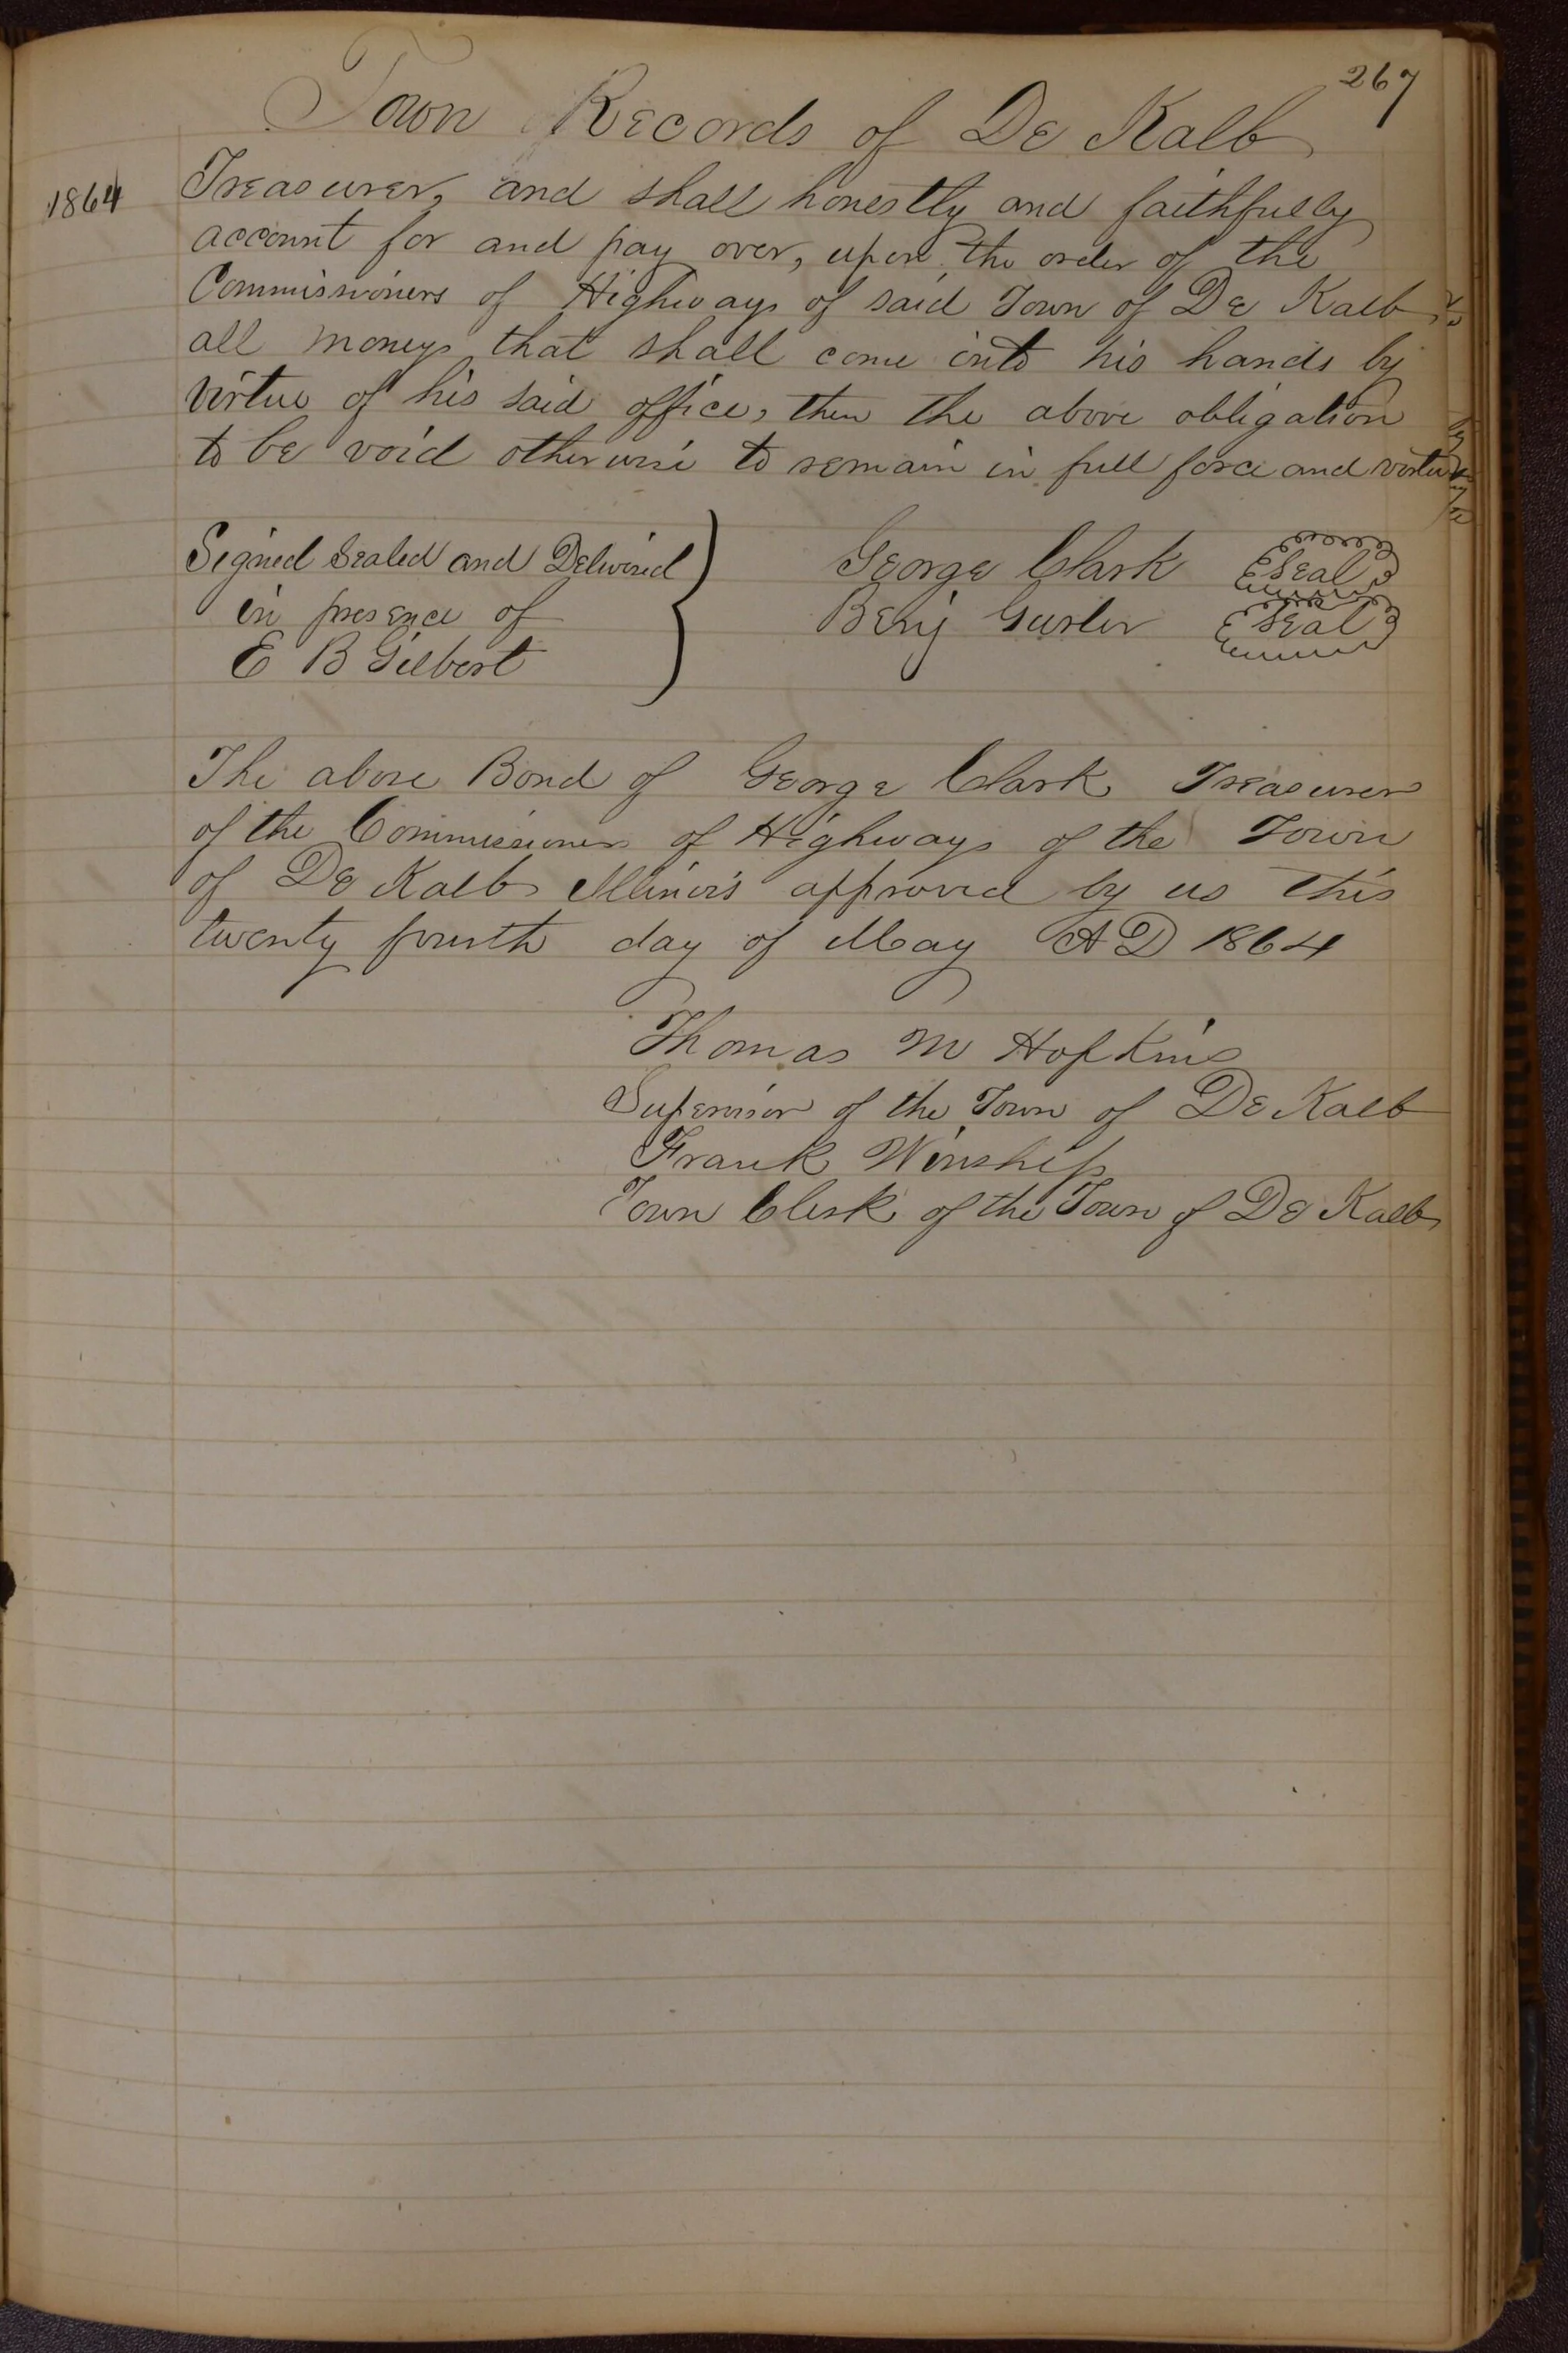 267
Town Records of De Kalb
1864
Treasurer, and shall honestly and faithfully
account for and pay over, upon the order of the
Commissioners of Highways of said Town of De Kalb
all moneys that shall come into his hands by
virtue of his said office, then the above obligation
to be void otherwise to remain in full force and virtue
Signed Sealed and Delivered
in presence of
E B Gilbert
George Clark Seal
Benj Gurler Seal
The above Bond of George Clark Treasurer
of the Commissioners of Highways of the Town
of De Kalb Illinois approved by us this
twenty fourth day of May AD 1864
Thomas M Hopkins
Supervisor of the Town of De Kalb
Frank Winship
Town Clerk of the Town of De Kalb